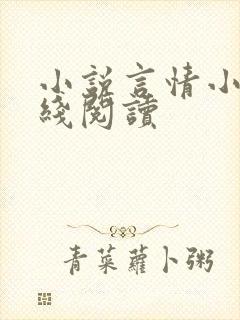 小說言情小
綫閱讀
青菜蘿卜粥